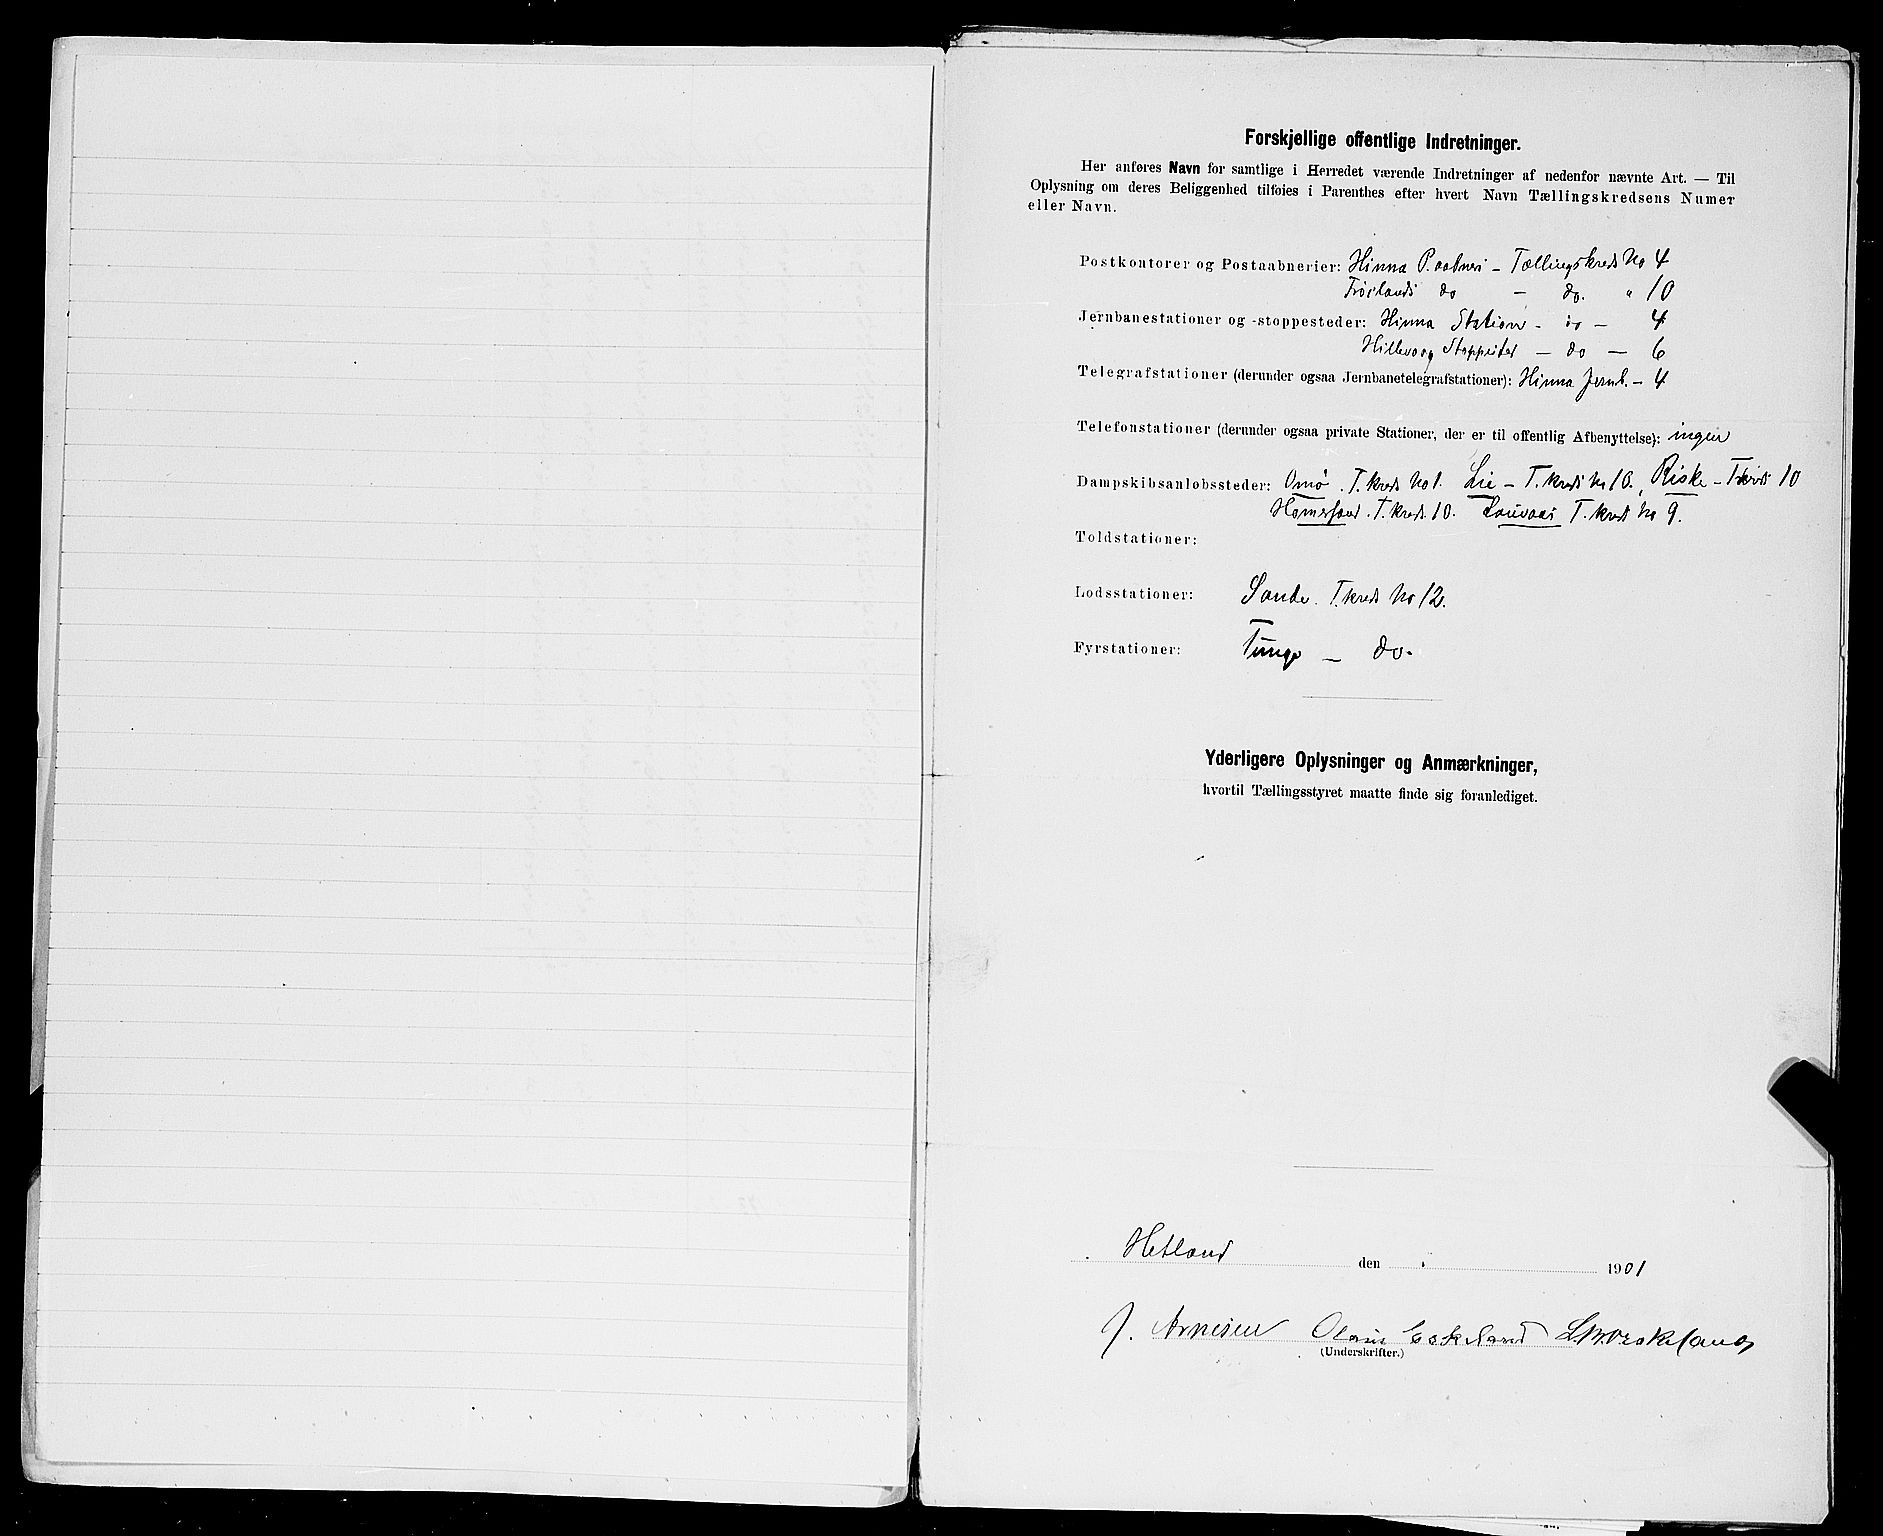 Forskjellige offentlige Indretninger.
Her anføres Navn for samtlige i Herredet værende Indretninger af nedenfor nævnte Art. — Til
Oplysning om deres Beliggenhed tilføies i Parenthes efter hvert Navn Tællingskredsens Numer
eller Navn.
Postkontorer og Postaabnerier: Hinna P.aabneri – Tællingskreds No 4
do – do. " 10
Jernbanestationer og -stoppesteder: Hinna Station – do – 4
Hillevaag Stoppested – do – 6
Telegrafstationer (derunder ogsaa Jernbanetelegrafstationer): Hinna Jernb. – 4
Telefonstationer (derunder ogsaa private Stationer, der er til offentlig Afbenyttelse): ingen
Dampskibsanløbssteder: Omø. T.kreds No 1. Lie – T.kreds No 10, Riske – T.kreds 10
T.kreds 10. T.kreds No 9.
Toldstationer:
Lodsstationer: Sande. T.kreds No 12.
Fyrstationer: Tunge – do.
Yderligere Oplysninger og Anmærkninger,
hvortil Tællingsstyret maatte finde sig foranlediget.
Hetland den 1901
J. Arnesen Olaus Eskeland
(Underskrifter.)